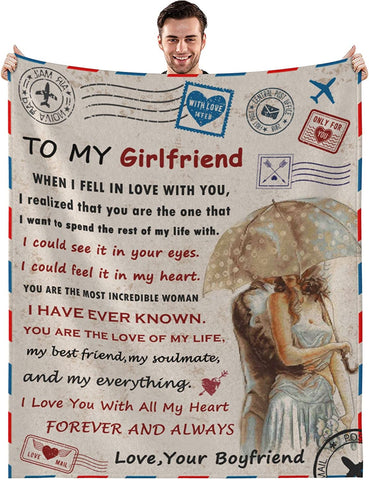 WITH LOVE
CENTRAL POST OFFICE
ONLY FOR
YOU
TO MY Girlfriend
WHEN I FELL IN LOVE WITH YOU,
I realized that you are the one that
I want to spend the rest of my life with.
I could see it in your eyes.
I could feel it in my heart.
YOU ARE THE MOST INCREDIBLE WOMAN
I HAVE EVER KNOWN.
YOU ARE THE LOVE OF MY LIFE,
my best friend, my soulmate,
and my everything.
I Love You With All My Heart
FOREVER AND ALWAYS
Love, Your Boyfriend
LOVE MAIL